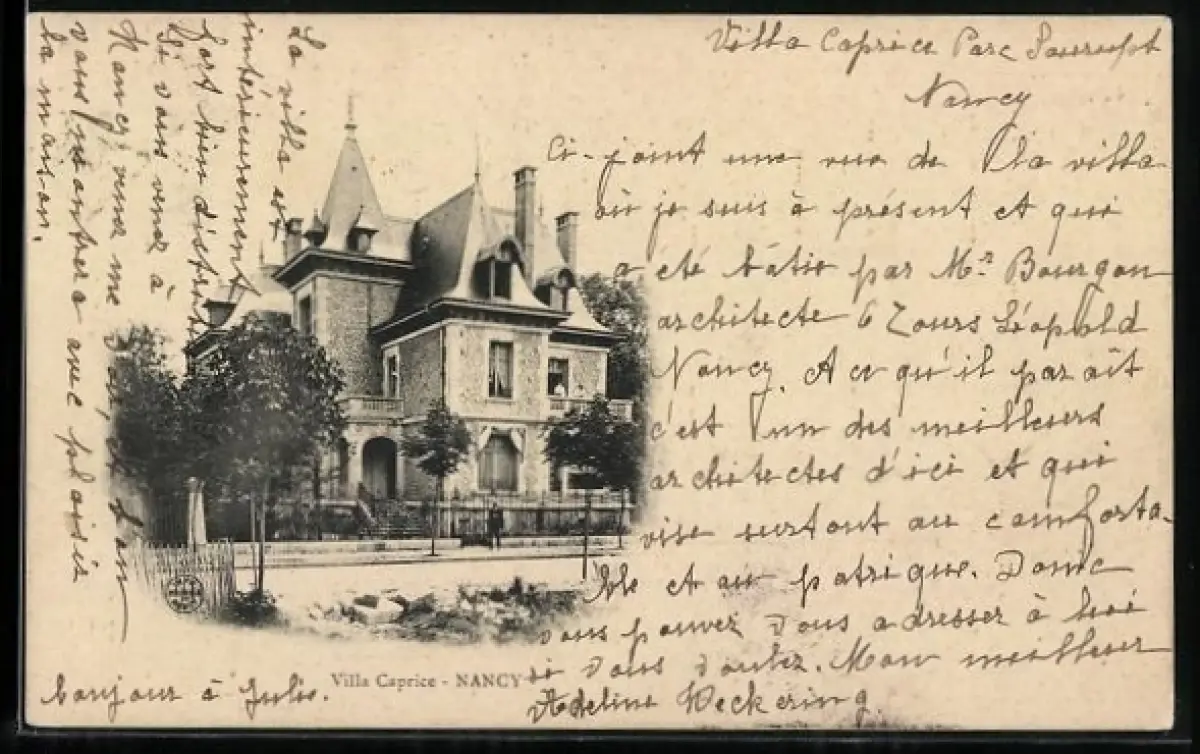 Villa Caprice Parc Saurupt
Nancy
Ci-joint une vue de la villa
où je suis à présent et qui
a été bâtie par Mr Bourgon
architecte 6 Cours Léopold
Nancy. A ce qu'il parait
c'est un des meilleurs
architectes d'ici et qui
vise surtout au comforta-
ble et au patrique. Donc
vous pouvez vous adresser à lui
si vous voulez. Mon meilleur
Adeline Weckering.
bonjour à Julie.
La villa est
intérieurement
fort bien distri
Si vous venez à
Nancy venez me
vous montrera avec plaisir
la maison.
Villa Caprice - NANCY